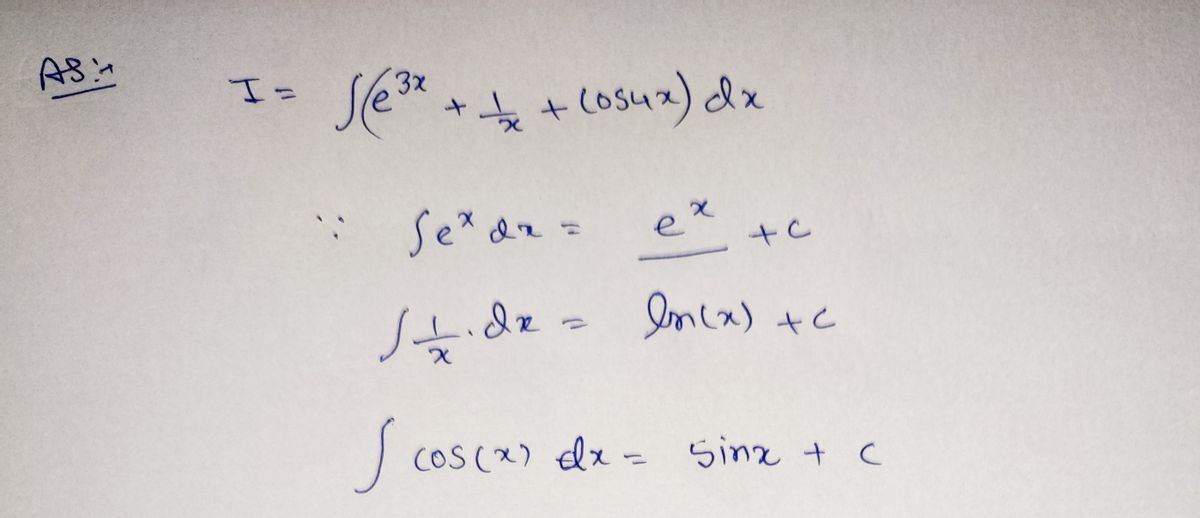 AS:→ I = ∫(e^{3x} + 1/x + cos4x) dx
∵ ∫e^x dx = e^x + c
∫ 1/x . dx = ln(x) + c
∫ cos(x) dx = sinx + c